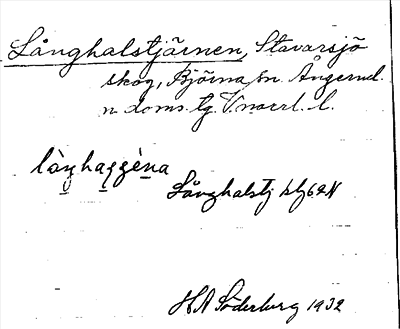 Långhalstjärnen, Stavarsjö
skog, Björna sn. Ångerml.
n. doms. tg. V.norrl. l.
Långhalstj blg 62 N
H A Söderberg 1932